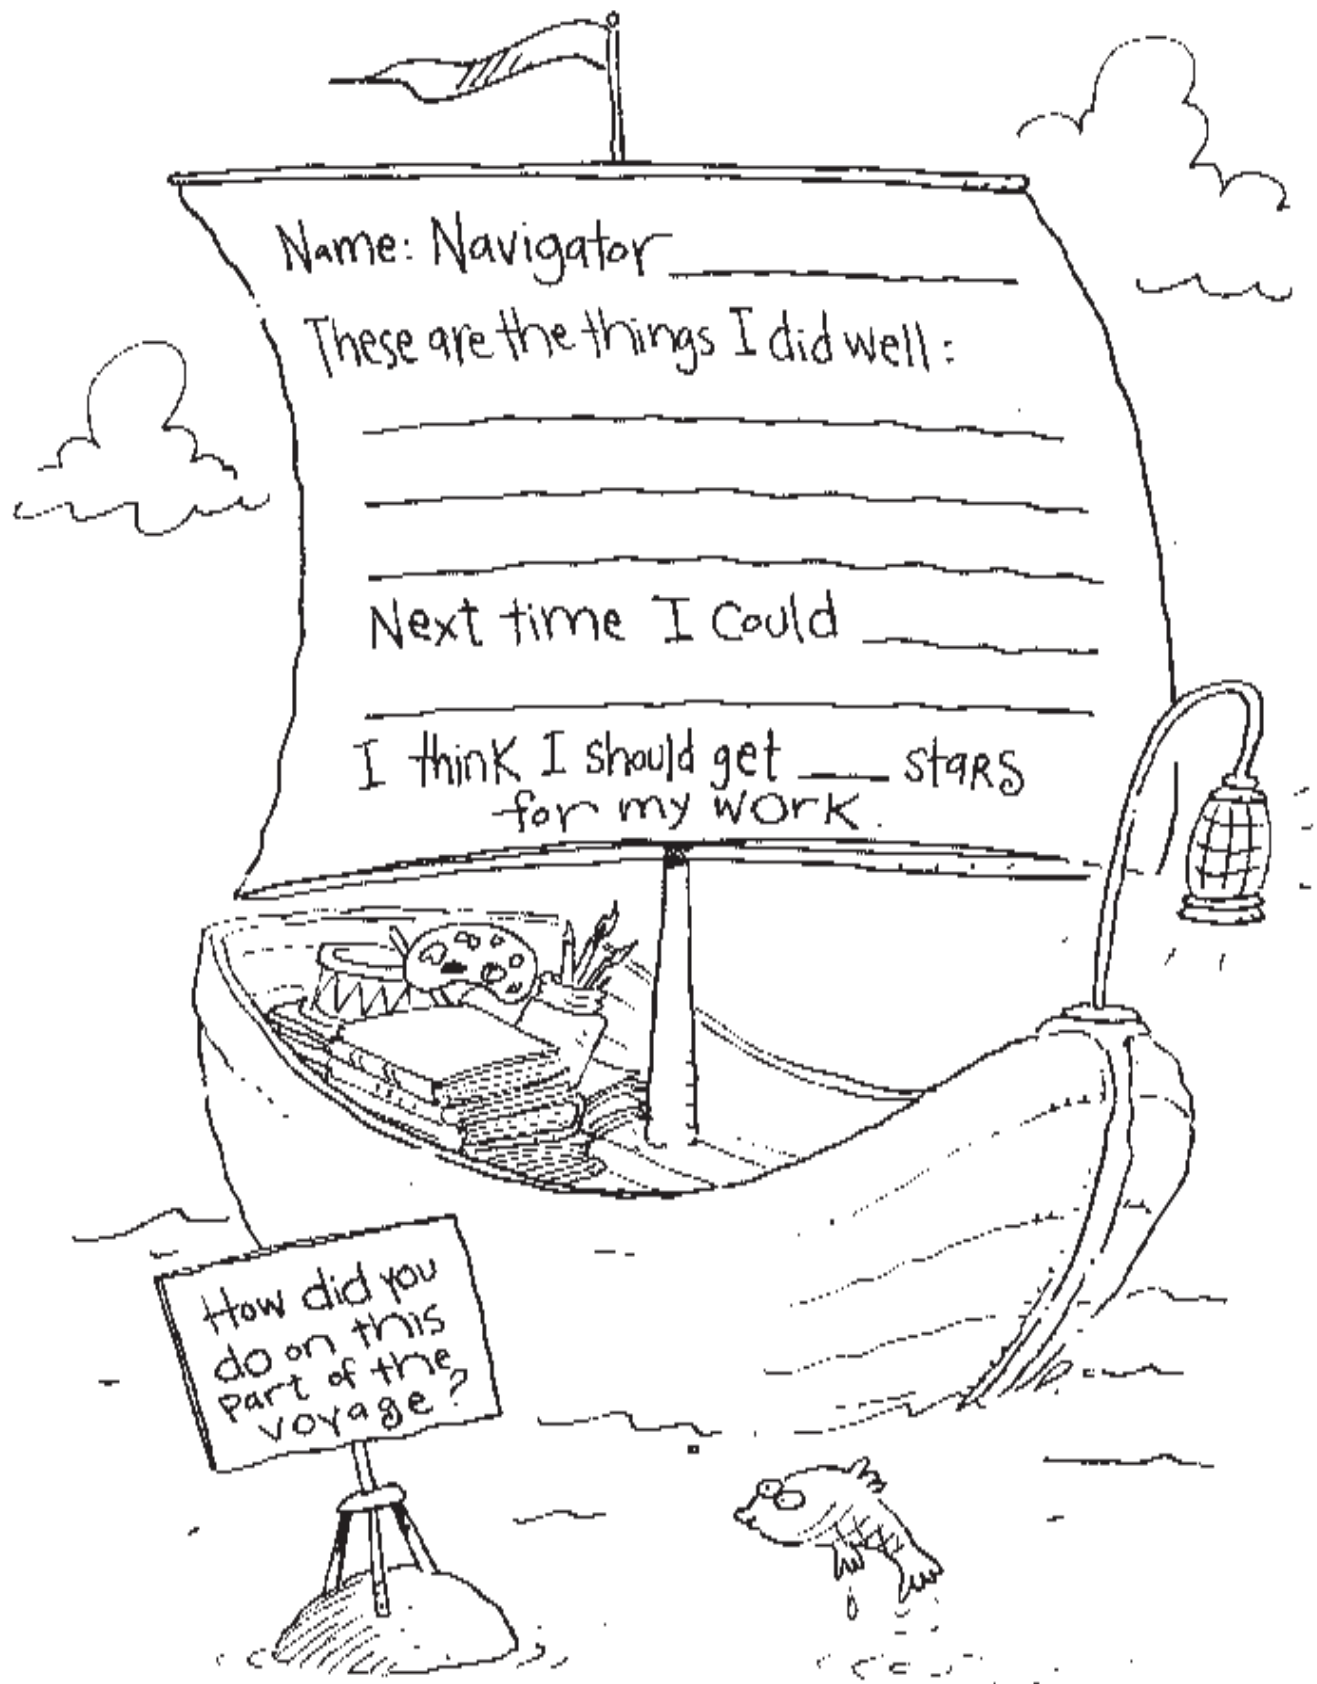 Name: Navigator
These are the things I did well:
Next time I could
I think I should get stars
for my work
How did you
do on this
part of the
voyage?